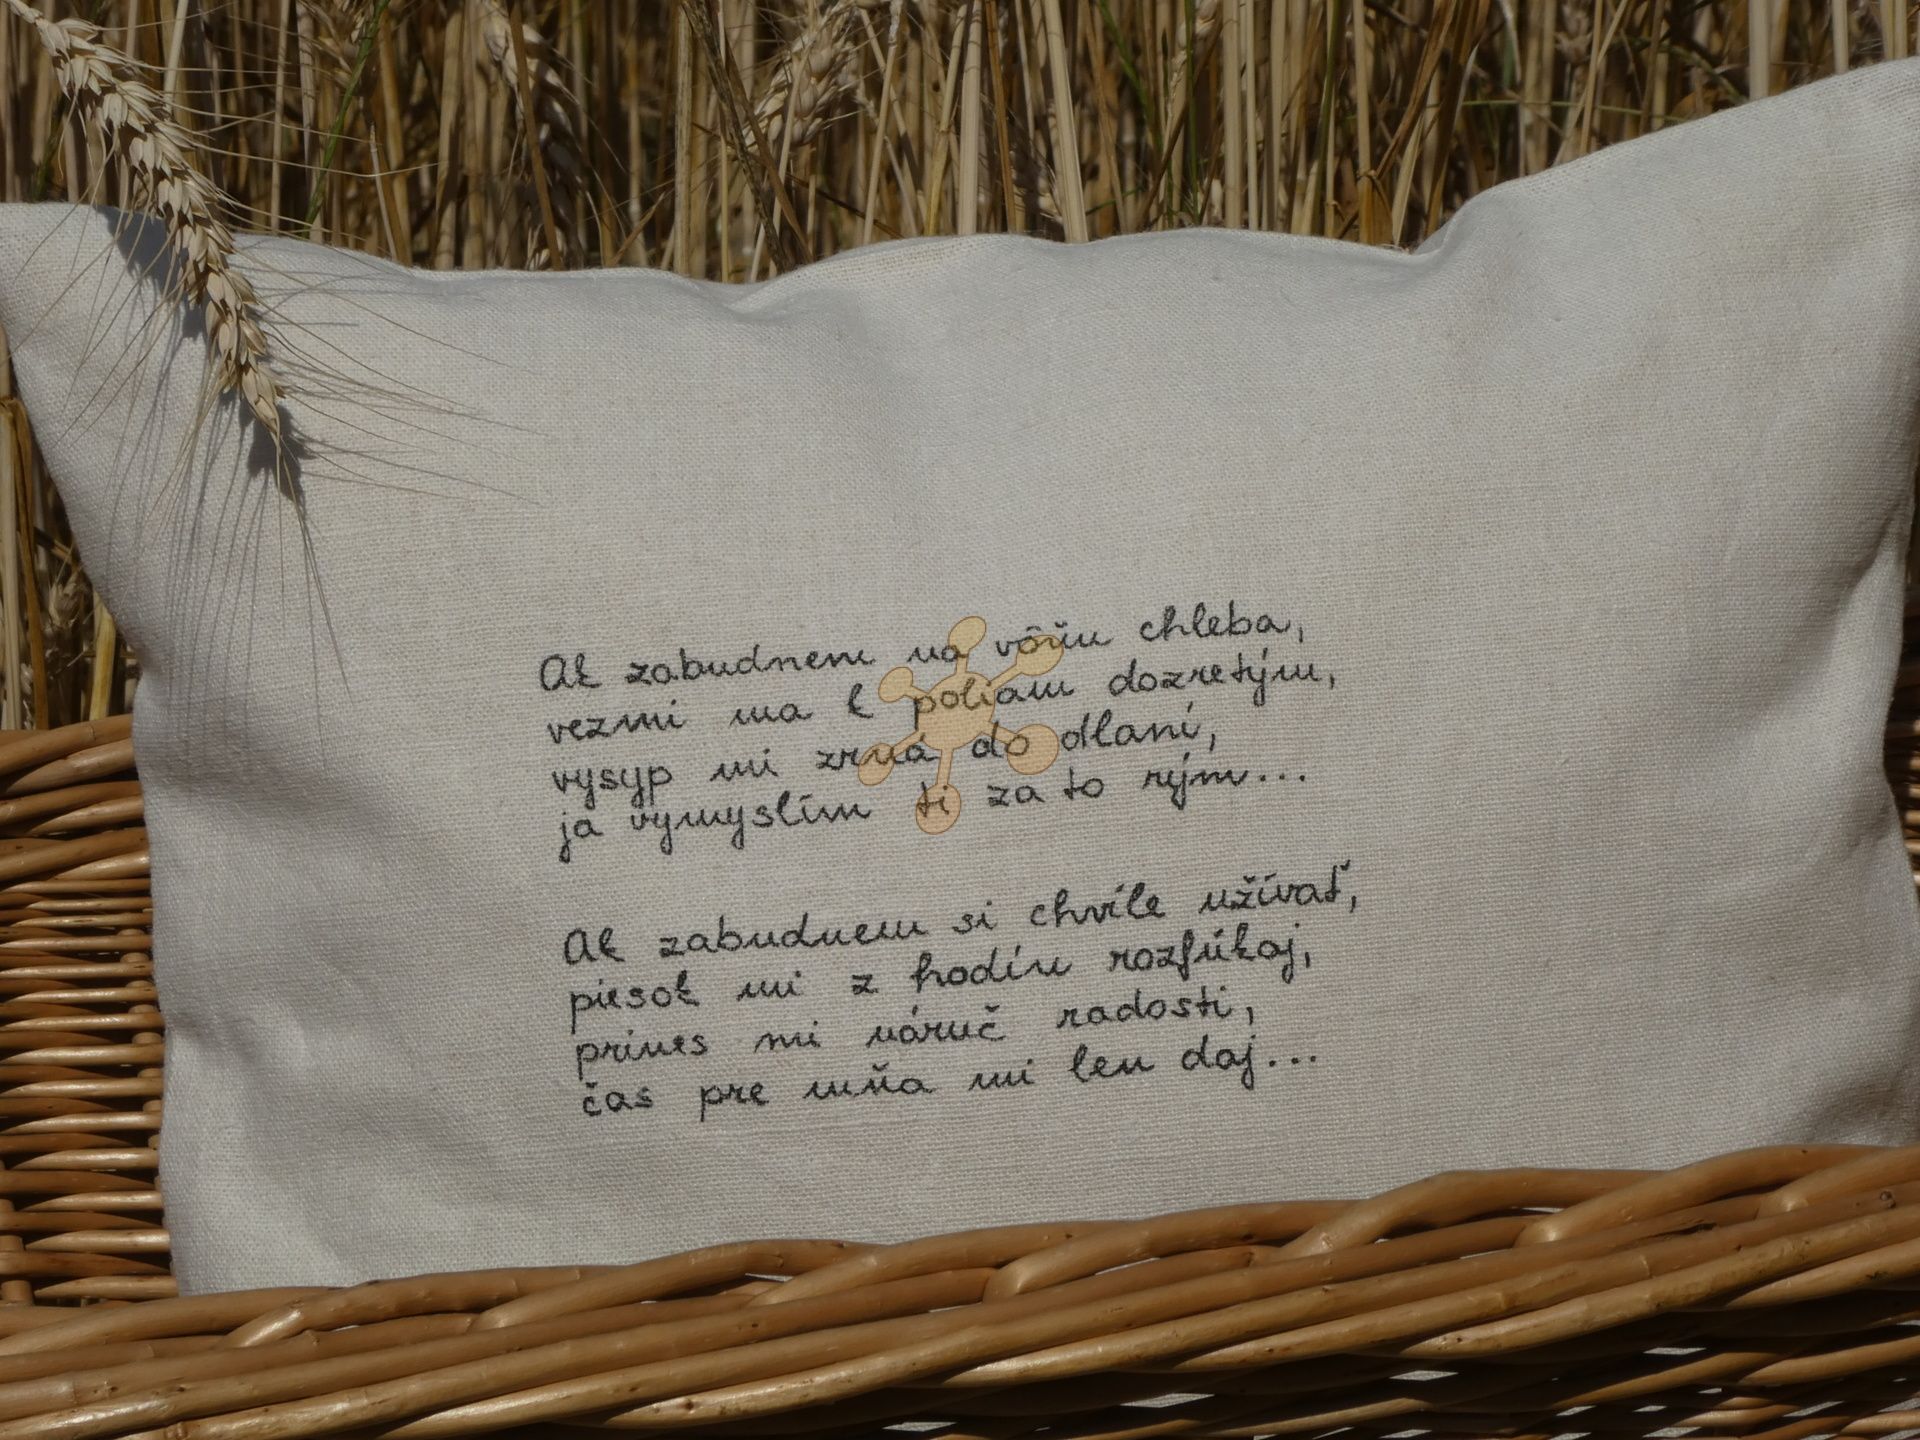 Ak zabudnem na vôňu chleba,
vezmi ma k poliam dozretým,
vysyp mi zrná do dlaní,
ja vymyslím ti za to rým...
Ak zabudnem si chvíle užívať,
piesok mi z hodín rozfúkaj,
prines mi náruč radosti,
čas pre mňa mi len daj...